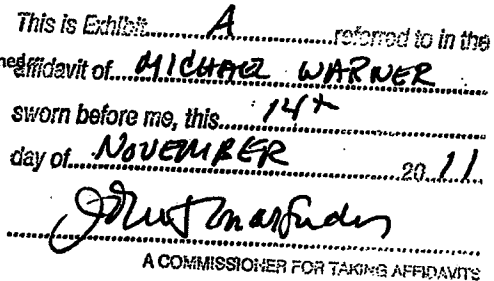 This is Exhibit A referred to in the
affidavit of MICHAEL WARNER
sworn before me, this 14th
day of NOVEMBER 2011
A COMMISSIONER FOR TAKING AFFIDAVITS